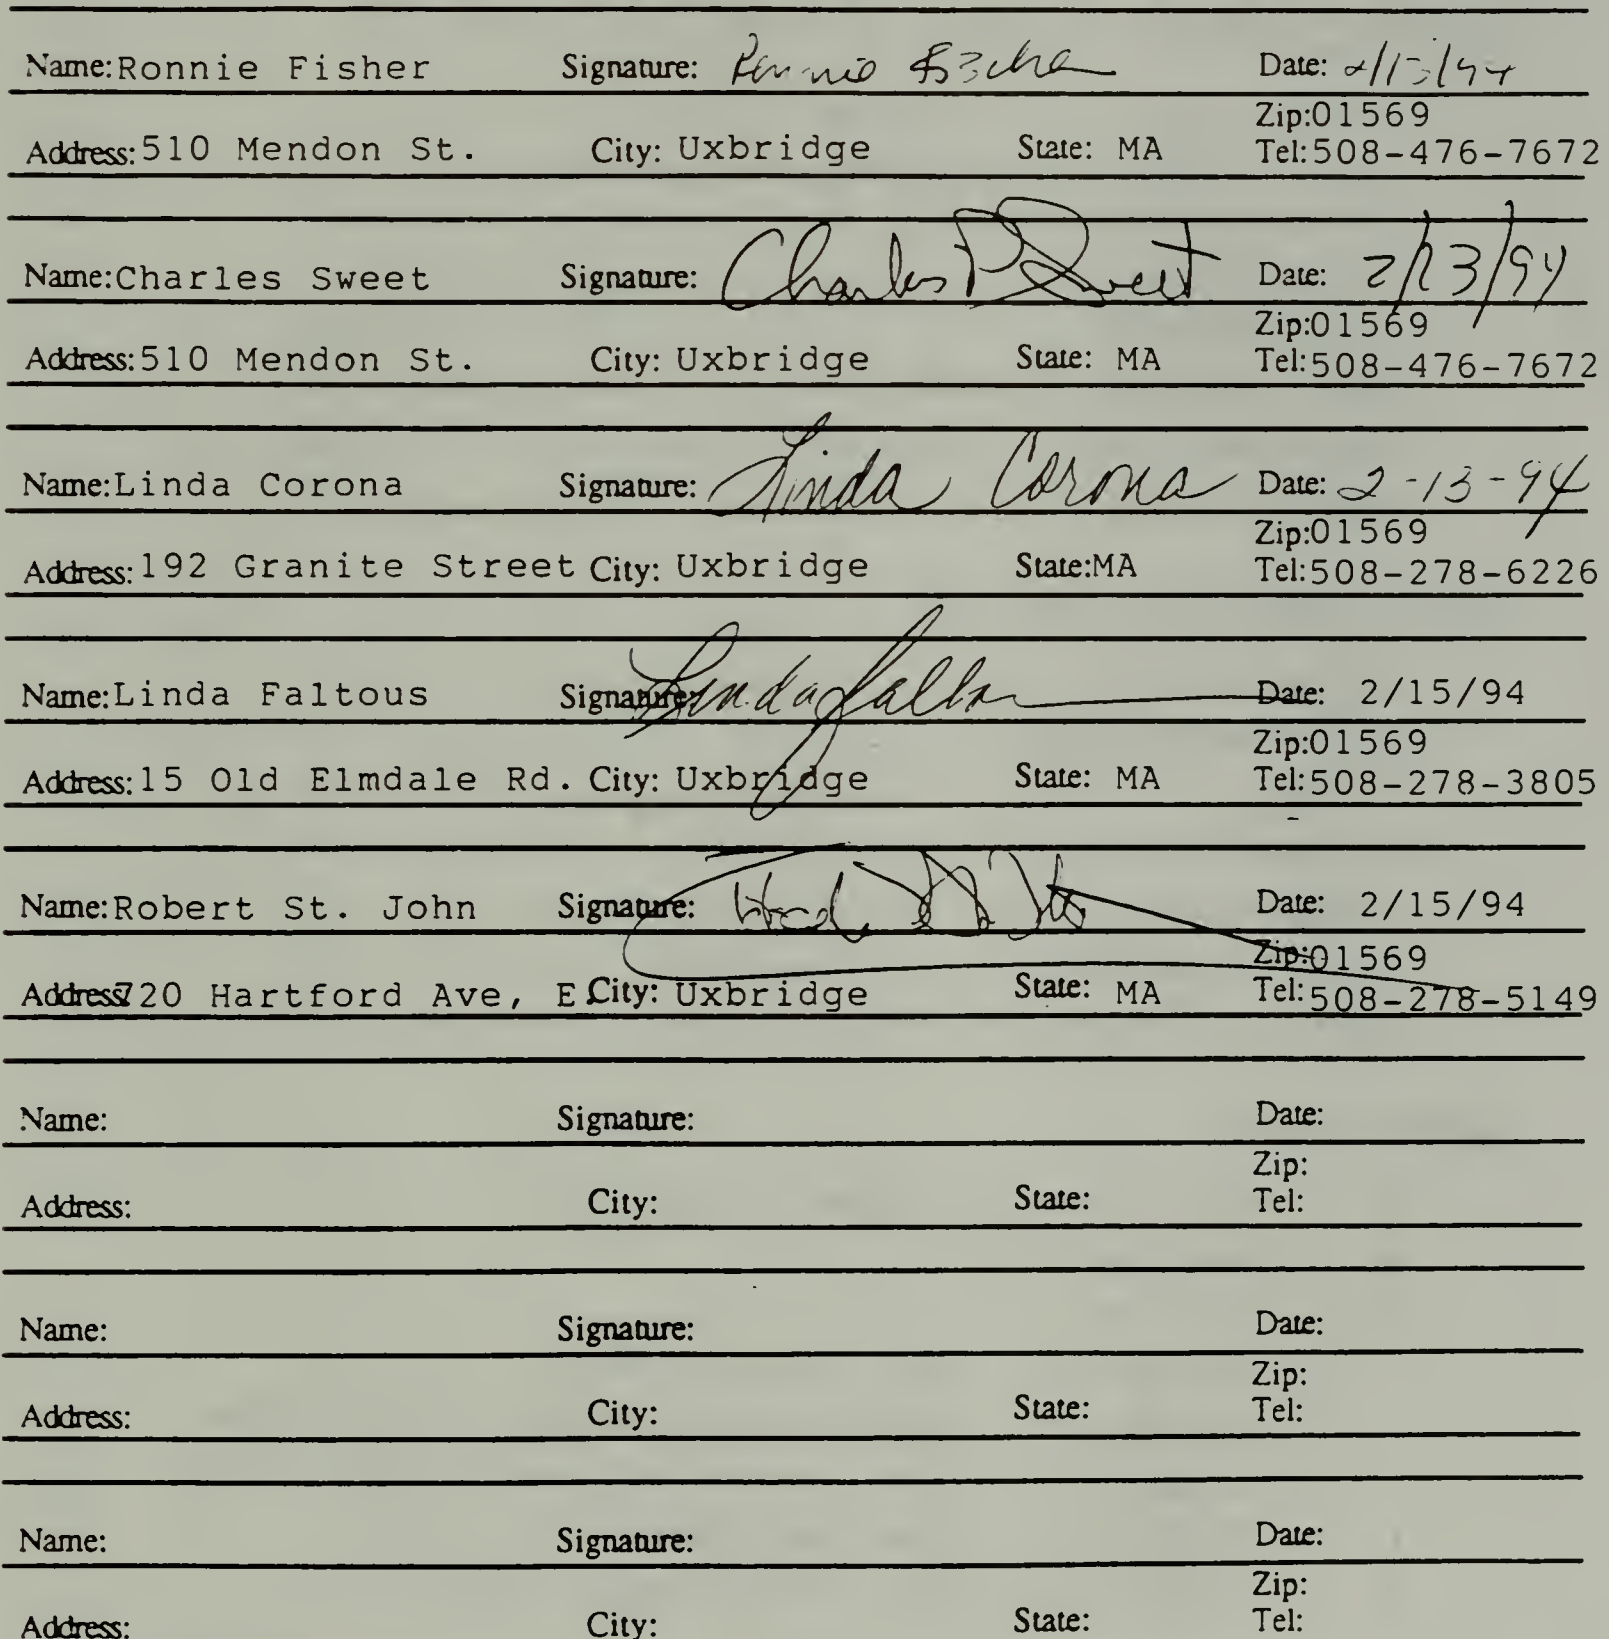 Name: Ronnie Fisher Signature: Date:
Zip:01569
Address: 510 Mendon St. City: Uxbridge State: MA Tel: 508-476-7672
Name: Charles Sweet Signature: Charles P Sweet Date: 2/13/94
Zip:01569
Address: 510 Mendon St. City: Uxbridge State: MA Tel: 508-476-7672
Name: Linda Corona Signature: Linda Corona Date: 2-13-94
Zip:01569
Address: 192 Granite Street City: Uxbridge State: MA Tel: 508-278-6226
Name: Linda Faltous Signature: Linda Date: 2/15/94
Zip:01569
Address: 15 Old Elmdale Rd. City: Uxbridge State: MA Tel: 508-278-3805
Name: Robert St. John Signature: Date: 2/15/94
Zip:01569
Address: 720 Hartford Ave, E. City: Uxbridge State: MA Tel: 508-278-5149
Name: Signature: Date:
Zip:
Address: City: State: Tel:
Name: Signature: Date:
Zip:
Address: City: State: Tel:
Name: Signature: Date:
Zip:
Address: City: State: Tel: